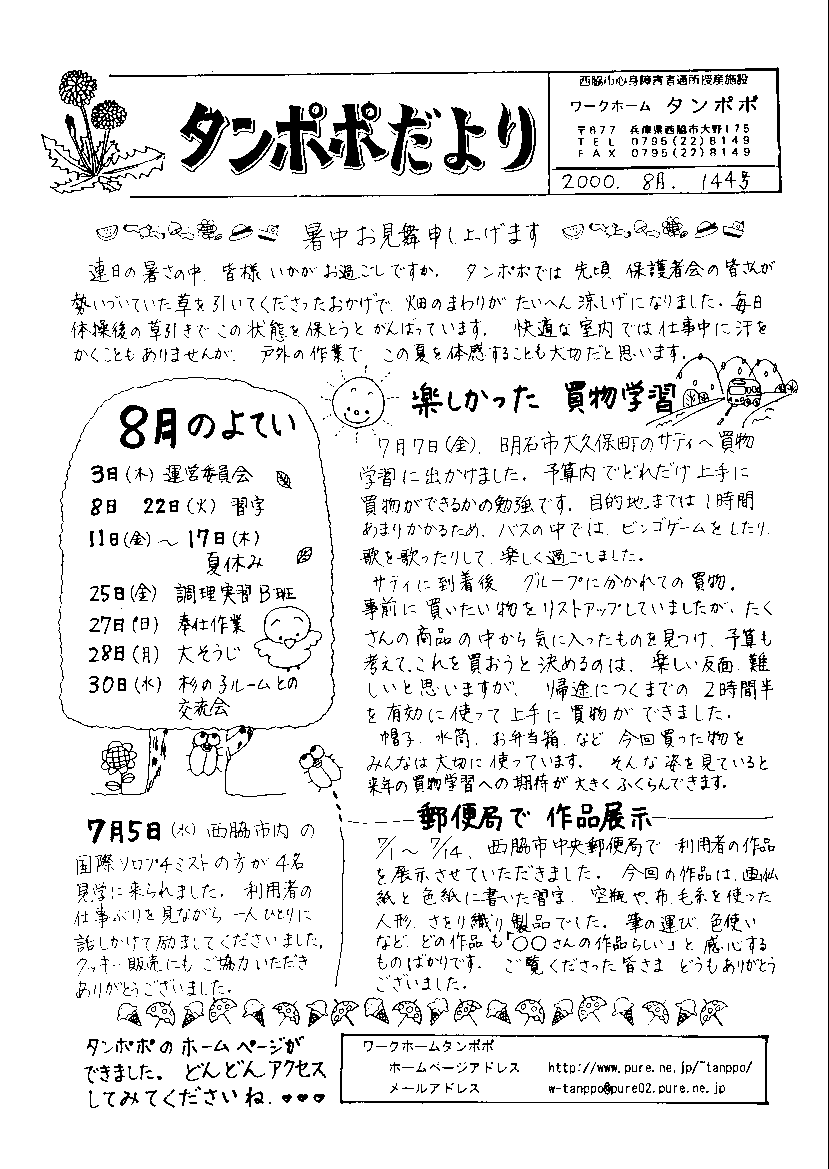 タンポポだより
西脇市心身障害者通所授産施設
ワークホーム タンポポ
〒677 兵庫県西脇市大野175
TEL 0795(22)8149
FAX 0795(22)8149
2000. 8月. 144号
暑中お見舞申し上げます
連日の暑さの中、皆様いかがお過ごしですか。 タンポポでは 先頃 保護者会の皆さんが
勢いづいていた草を引いてくださったおかげで、畑のまわりが たいへん涼しげになりました。毎日
体操後の草引きで この状態を保とうと がんばっています。 快適な室内では仕事中に汗を
かくこともありませんが、 戸外の作業で この夏を体感することも大切だと思います。
8月のよてい
3日(木) 運営委員会
8日 22日(火) 習字
11日(金)～17日(木)
夏休み
25日(金) 調理実習B班
27日(日) 奉仕作業
28日(月) 大そうじ
30日(水) 杉の子ルームとの
交流会
楽しかった 買物学習
7月7日(金)、明石市大久保町のサティへ買物
学習に出かけました。予算内でどれだけ上手に
買物ができるかの勉強です。目的地までは1時間
あまりかかるため、バスの中では、ビンゴゲームをしたり、
歌を歌ったりして、楽しく過ごしました。
サティに到着後 グループにわかれての買物。
事前に買いたい物をリストアップしていましたが、たく
さんの商品の中から気に入ったものを見つけ、予算も
考えて、これを買おうと決めるのは、楽しい反面、難
しいと思いますが、 帰途につくまでの 2時間半
を有効に使って上手に買物ができました。
帽子、水筒、お弁当箱、など 今回買った物を
みんなは大切に使っています。 そんな姿を見ていると
来年の買物学習への期待が大きくふくらんできます。
7月5日(水) 西脇市内の
国際ソロプチミストの方が4名
見学に来られました。利用者の
仕事ぶりを見ながら 一人ひとりに
話しかけて励ましてくださいました。
クッキー販売にもご協力いただき
ありがとうございました。
郵便局で 作品展示
7/1～7/14、西脇市中央郵便局で 利用者の作品
を展示させていただきました。今回の作品は、画仙
紙と色紙に書いた習字、空瓶や、布、毛糸を使った
人形、さをり織り製品でした。筆の運び、色使い
など、どの作品も「○○さんの作品らしい」と感心する
ものばかりです。 ご覧くださった皆さま どうもありがとう
ございました。
タンポポのホームページが
できました。どんどんアクセス
してみてくださいね。♥♥♥
ワークホームタンポポ
ホームページアドレス http://www.pure.ne.jp/~tanppo/
メールアドレス w-tanppo@pure02.pure.ne.jp